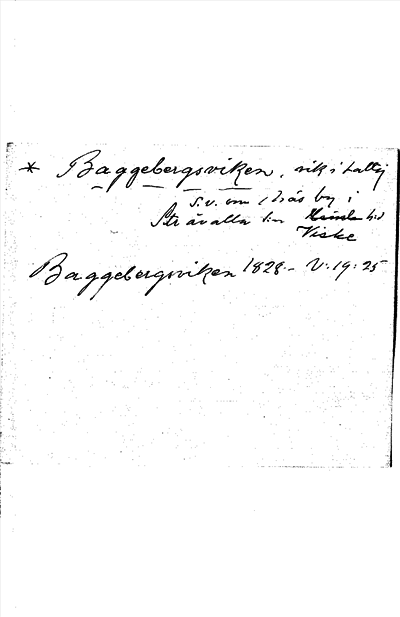 * Baggebergsviken, vik i Kattg
s.v. om Ås by i
Stråvalla sn Himle hd
Viske
Baggebergsviken 1828.- V.19:25